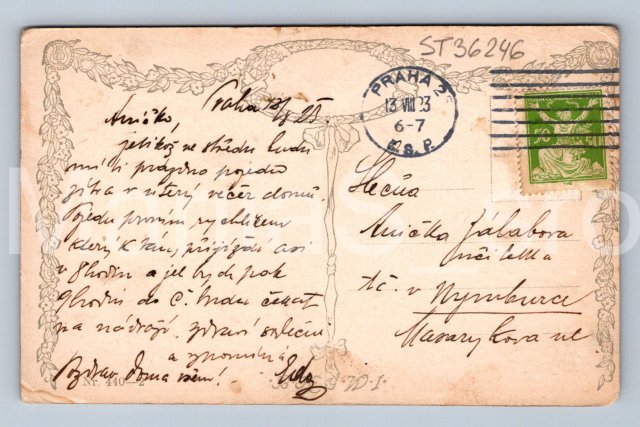 ST36246
PRAHA 2
13 VIII 23
6-7
Č.S.P.
Praha
Aničko,
jelikož ve středu budu
míti prázdno pojedu
zítra v úterý večer domů.
Pojedu prvním rychlíkem
který k Vám přijíždí asi
v 8 hodin a jel bych pak
9 hodin do
na nádraží. Zdraví srdečně
a vzpomíná
Pozdrav doma všem!
Nr. 440
Slečna
Anička
učitelka
t.č. v Nymburce
Masarykova ul